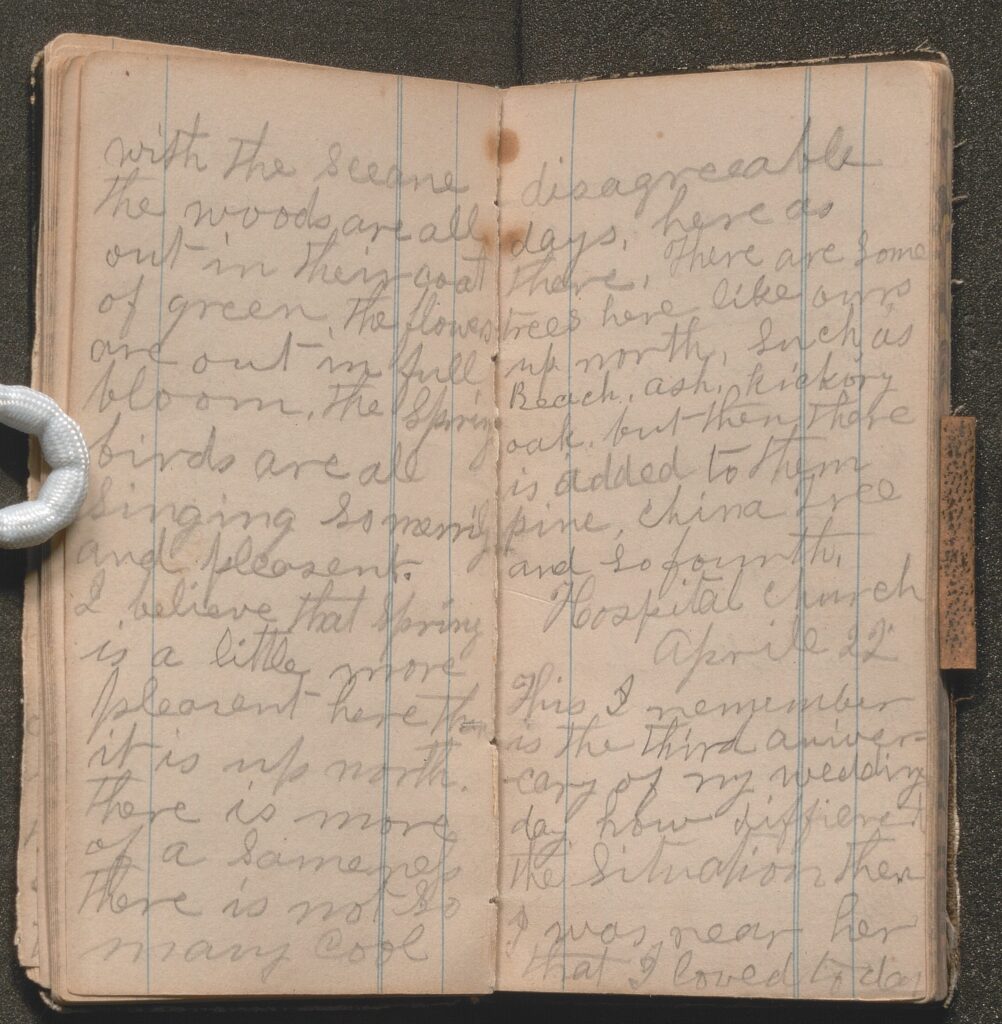 with the Sceane
the woods are all
out in their coat
of green. the flowes
are out in full
bloom. the Spring
birds are all
Singing So merrily
and pleasent.
I believe that Spring
is a little more
pleasent here than
it is up north.
there is more
of a Sameness
there is not So
many Cool
disagreeable
days, here as
there, There are Some
trees here like ours
up north, Such as
Beach, ash, hickory
oak. but then there
is added to them
pine, China tree
and So fourth,
Hospital Church
Aprile 22
This I remember
is the third aniver-
cary of my wedding
day how diffierent
the Situation then
I was near her
that I loved to day